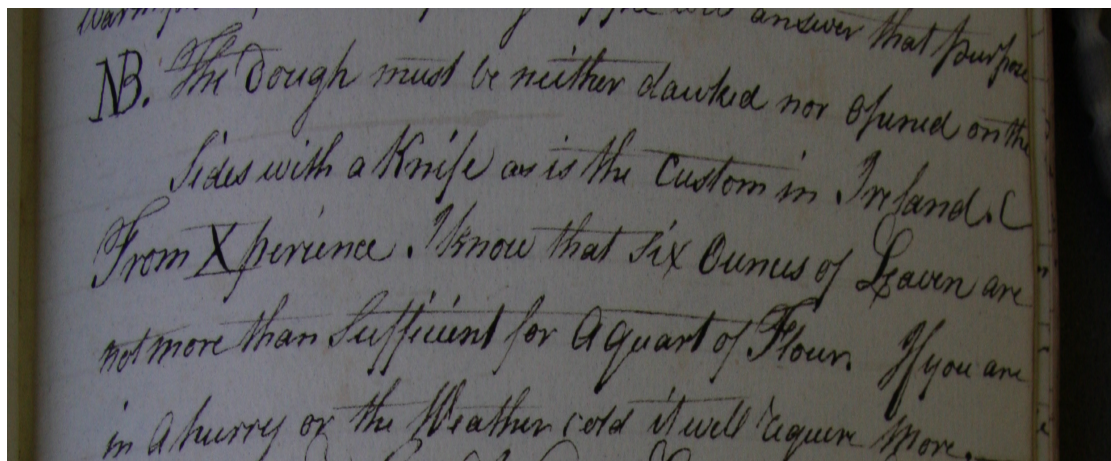 answer that purpose
NB. The Dough must be neither dawked nor Opened on the
Sides with a Knife as is the Custom in Ireland. (
From Xperience. I know that six Ounces of Leaven are
not more than Sufficient for a quart of Flour. If you are
in a hurry or the Weather cold it will require More.